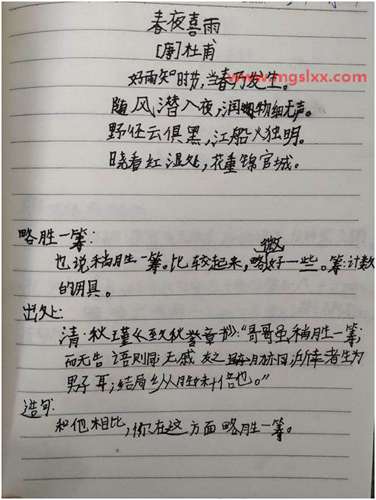 春夜喜雨
[唐]杜甫
好雨知时节,当春乃发生。
www.mgslxx.com
随风潜入夜,润物细无声。
野径云俱黑,江船火独明。
晓看红湿处,花重锦官城。
略胜一筹:
也说稍胜一筹。比较起来,略微好一些。筹:计数
的用具。
出处:
清·秋瑾《致秋誉章书》:"哥哥虽稍胜一筹;
而无告语则同无戚
男子耳;结局
倍也。"
造句:
和他相比,你在这方面略胜一筹。